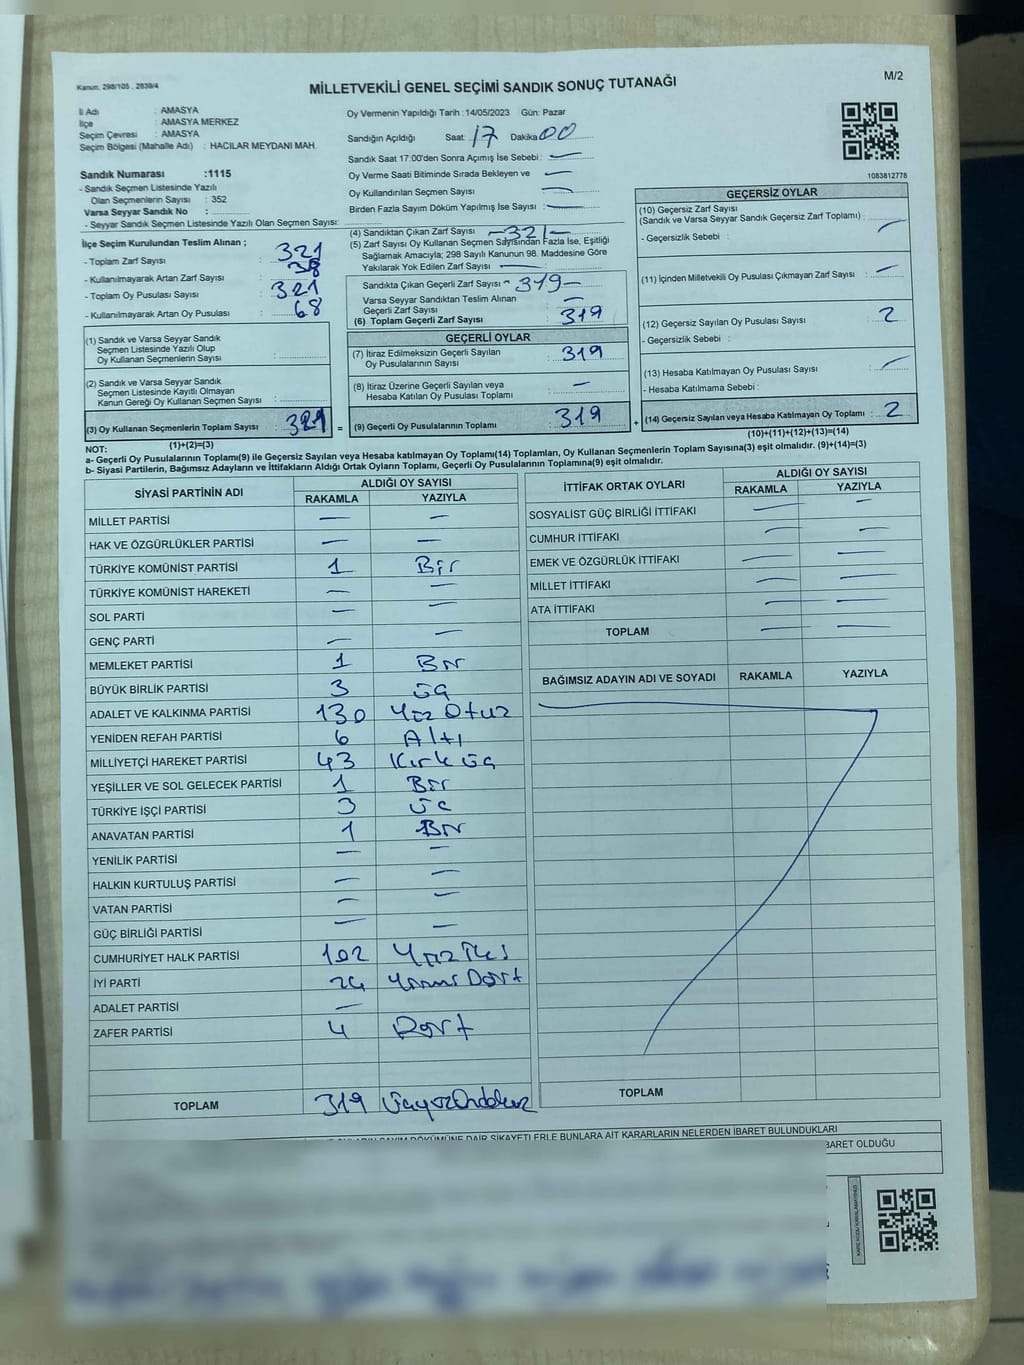 Kanun: 298/105 , 2839/4
MİLLETVEKİLİ GENEL SEÇİMİ SANDIK SONUÇ TUTANAĞI
M/2
İl Adı : AMASYA
İlçe : AMASYA MERKEZ
Seçim Çevresi : AMASYA
Seçim Bölgesi (Mahalle Adı) : HACILAR MEYDANI MAH.
Sandık Numarası :1115
- Sandık Seçmen Listesinde Yazılı
Olan Seçmenlerin Sayısı : 352
Varsa Seyyar Sandık No :
- Seyyar Sandık Seçmen Listesinde Yazılı Olan Seçmen Sayısı:
İlçe Seçim Kurulundan Teslim Alınan ;
- Toplam Zarf Sayısı : 321
- Kullanılmayarak Artan Zarf Sayısı : 38
- Toplam Oy Pusulası Sayısı : 321
- Kullanılmayarak Artan Oy Pusulası : 68
(1) Sandık ve Varsa Seyyar Sandık
Seçmen Listesinde Yazılı Olup
Oy Kullanan Seçmenlerin Sayısı :
(2) Sandık ve Varsa Seyyar Sandık
Seçmen Listesinde Kayıtlı Olmayan
Kanun Gereği Oy Kullanan Seçmen Sayısı :
(3) Oy Kullanan Seçmenlerin Toplam Sayısı : 321
(1)+(2)=(3)
Oy Vermenin Yapıldığı Tarih : 14/05/2023 Gün: Pazar
Sandığın Açıldığı Saat: 17 Dakika 00
Sandık Saat 17.00'den Sonra Açımış İse Sebebi : —
Oy Verme Saati Bitiminde Sırada Bekleyen ve —
Oy Kullandırılan Seçmen Sayısı : —
Birden Fazla Sayım Döküm Yapılmış İse Sayısı : —
(4) Sandıktan Çıkan Zarf Sayısı : —321—
(5) Zarf Sayısı Oy Kullanan Seçmen Sayısından Fazla İse, Eşitliği
Sağlamak Amacıyla; 298 Sayılı Kanunun 98. Maddesine Göre
Yakılarak Yok Edilen Zarf Sayısı : —
Sandıkta Çıkan Geçerli Zarf Sayısı - 319—
Varsa Seyyar Sandıktan Teslim Alınan
Geçerli Zarf Sayısı : —
(6) Toplam Geçerli Zarf Sayısı : 319
GEÇERLİ OYLAR
(7) İtiraz Edilmeksizin Geçerli Sayılan
Oy Pusulalarının Sayısı : 319
(8) İtiraz Üzerine Geçerli Sayılan veya
Hesaba Katılan Oy Pusulası Toplamı : —
= (9) Geçerli Oy Pusulalarının Toplamı : 319
1083812778
GEÇERSİZ OYLAR
(10) Geçersiz Zarf Sayısı
(Sandık ve Varsa Seyyar Sandık Geçersiz Zarf Toplamı) : —
- Geçersizlik Sebebi :
(11) İçinden Milletvekili Oy Pusulası Çıkmayan Zarf Sayısı : —
(12) Geçersiz Sayılan Oy Pusulası Sayısı : 2
- Geçersizlik Sebebi :
(13) Hesaba Katılmayan Oy Pusulası Sayısı : —
- Hesaba Katılmama Sebebi :
+ (14) Geçersiz Sayılan veya Hesaba Katılmayan Oy Toplamı : 2
(10)+(11)+(12)+(13)=(14)
NOT:
a- Geçerli Oy Pusulalarının Toplamı(9) ile Geçersiz Sayılan veya Hesaba katılmayan Oy Toplamı(14) Toplamları, Oy Kullanan Seçmenlerin Toplam Sayısına(3) eşit olmalıdır. (9)+(14)=(3)
b- Siyasi Partilerin, Bağımsız Adayların ve İttifakların Aldığı Ortak Oyların Toplamı, Geçerli Oy Pusulalarının Toplamına(9) eşit olmalıdır.
SİYASİ PARTİNİN ADI ALDIĞI OY SAYISI
RAKAMLA YAZIYLA
MİLLET PARTİSİ — —
HAK VE ÖZGÜRLÜKLER PARTİSİ — —
TÜRKİYE KOMÜNİST PARTİSİ 1 Bir
TÜRKİYE KOMÜNİST HAREKETİ — —
SOL PARTİ — —
GENÇ PARTİ — —
MEMLEKET PARTİSİ 1 Bir
BÜYÜK BİRLİK PARTİSİ 3 üç
ADALET VE KALKINMA PARTİSİ 130 Yüz Otuz
YENİDEN REFAH PARTİSİ 6 Altı
MİLLİYETÇİ HAREKET PARTİSİ 43 Kırk üç
YEŞİLLER VE SOL GELECEK PARTİSİ 1 Bir
TÜRKİYE İŞÇİ PARTİSİ 3 üç
ANAVATAN PARTİSİ 1 Bir
YENİLİK PARTİSİ — —
HALKIN KURTULUŞ PARTİSİ — —
VATAN PARTİSİ — —
GÜÇ BİRLİĞİ PARTİSİ — —
CUMHURİYET HALK PARTİSİ 102 Yüz İki
İYİ PARTİ 24 Yirmi Dört
ADALET PARTİSİ —
ZAFER PARTİSİ 4 Dört
TOPLAM 319 Üçyüz Ondokuz
İTTİFAK ORTAK OYLARI ALDIĞI OY SAYISI
RAKAMLA YAZIYLA
SOSYALİST GÜÇ BİRLİĞİ İTTİFAKI — —
CUMHUR İTTİFAKI — —
EMEK VE ÖZGÜRLÜK İTTİFAKI — —
MİLLET İTTİFAKI — —
ATA İTTİFAKI — —
TOPLAM — —
BAĞIMSIZ ADAYIN ADI VE SOYADI RAKAMLA YAZIYLA
TOPLAM
SAYIM DÖKÜMÜNE DAİR ŞİKAYETLERLE BUNLARA AİT KARARLARIN NELERDEN İBARET BULUNDUKLARI
BARET OLDUĞU